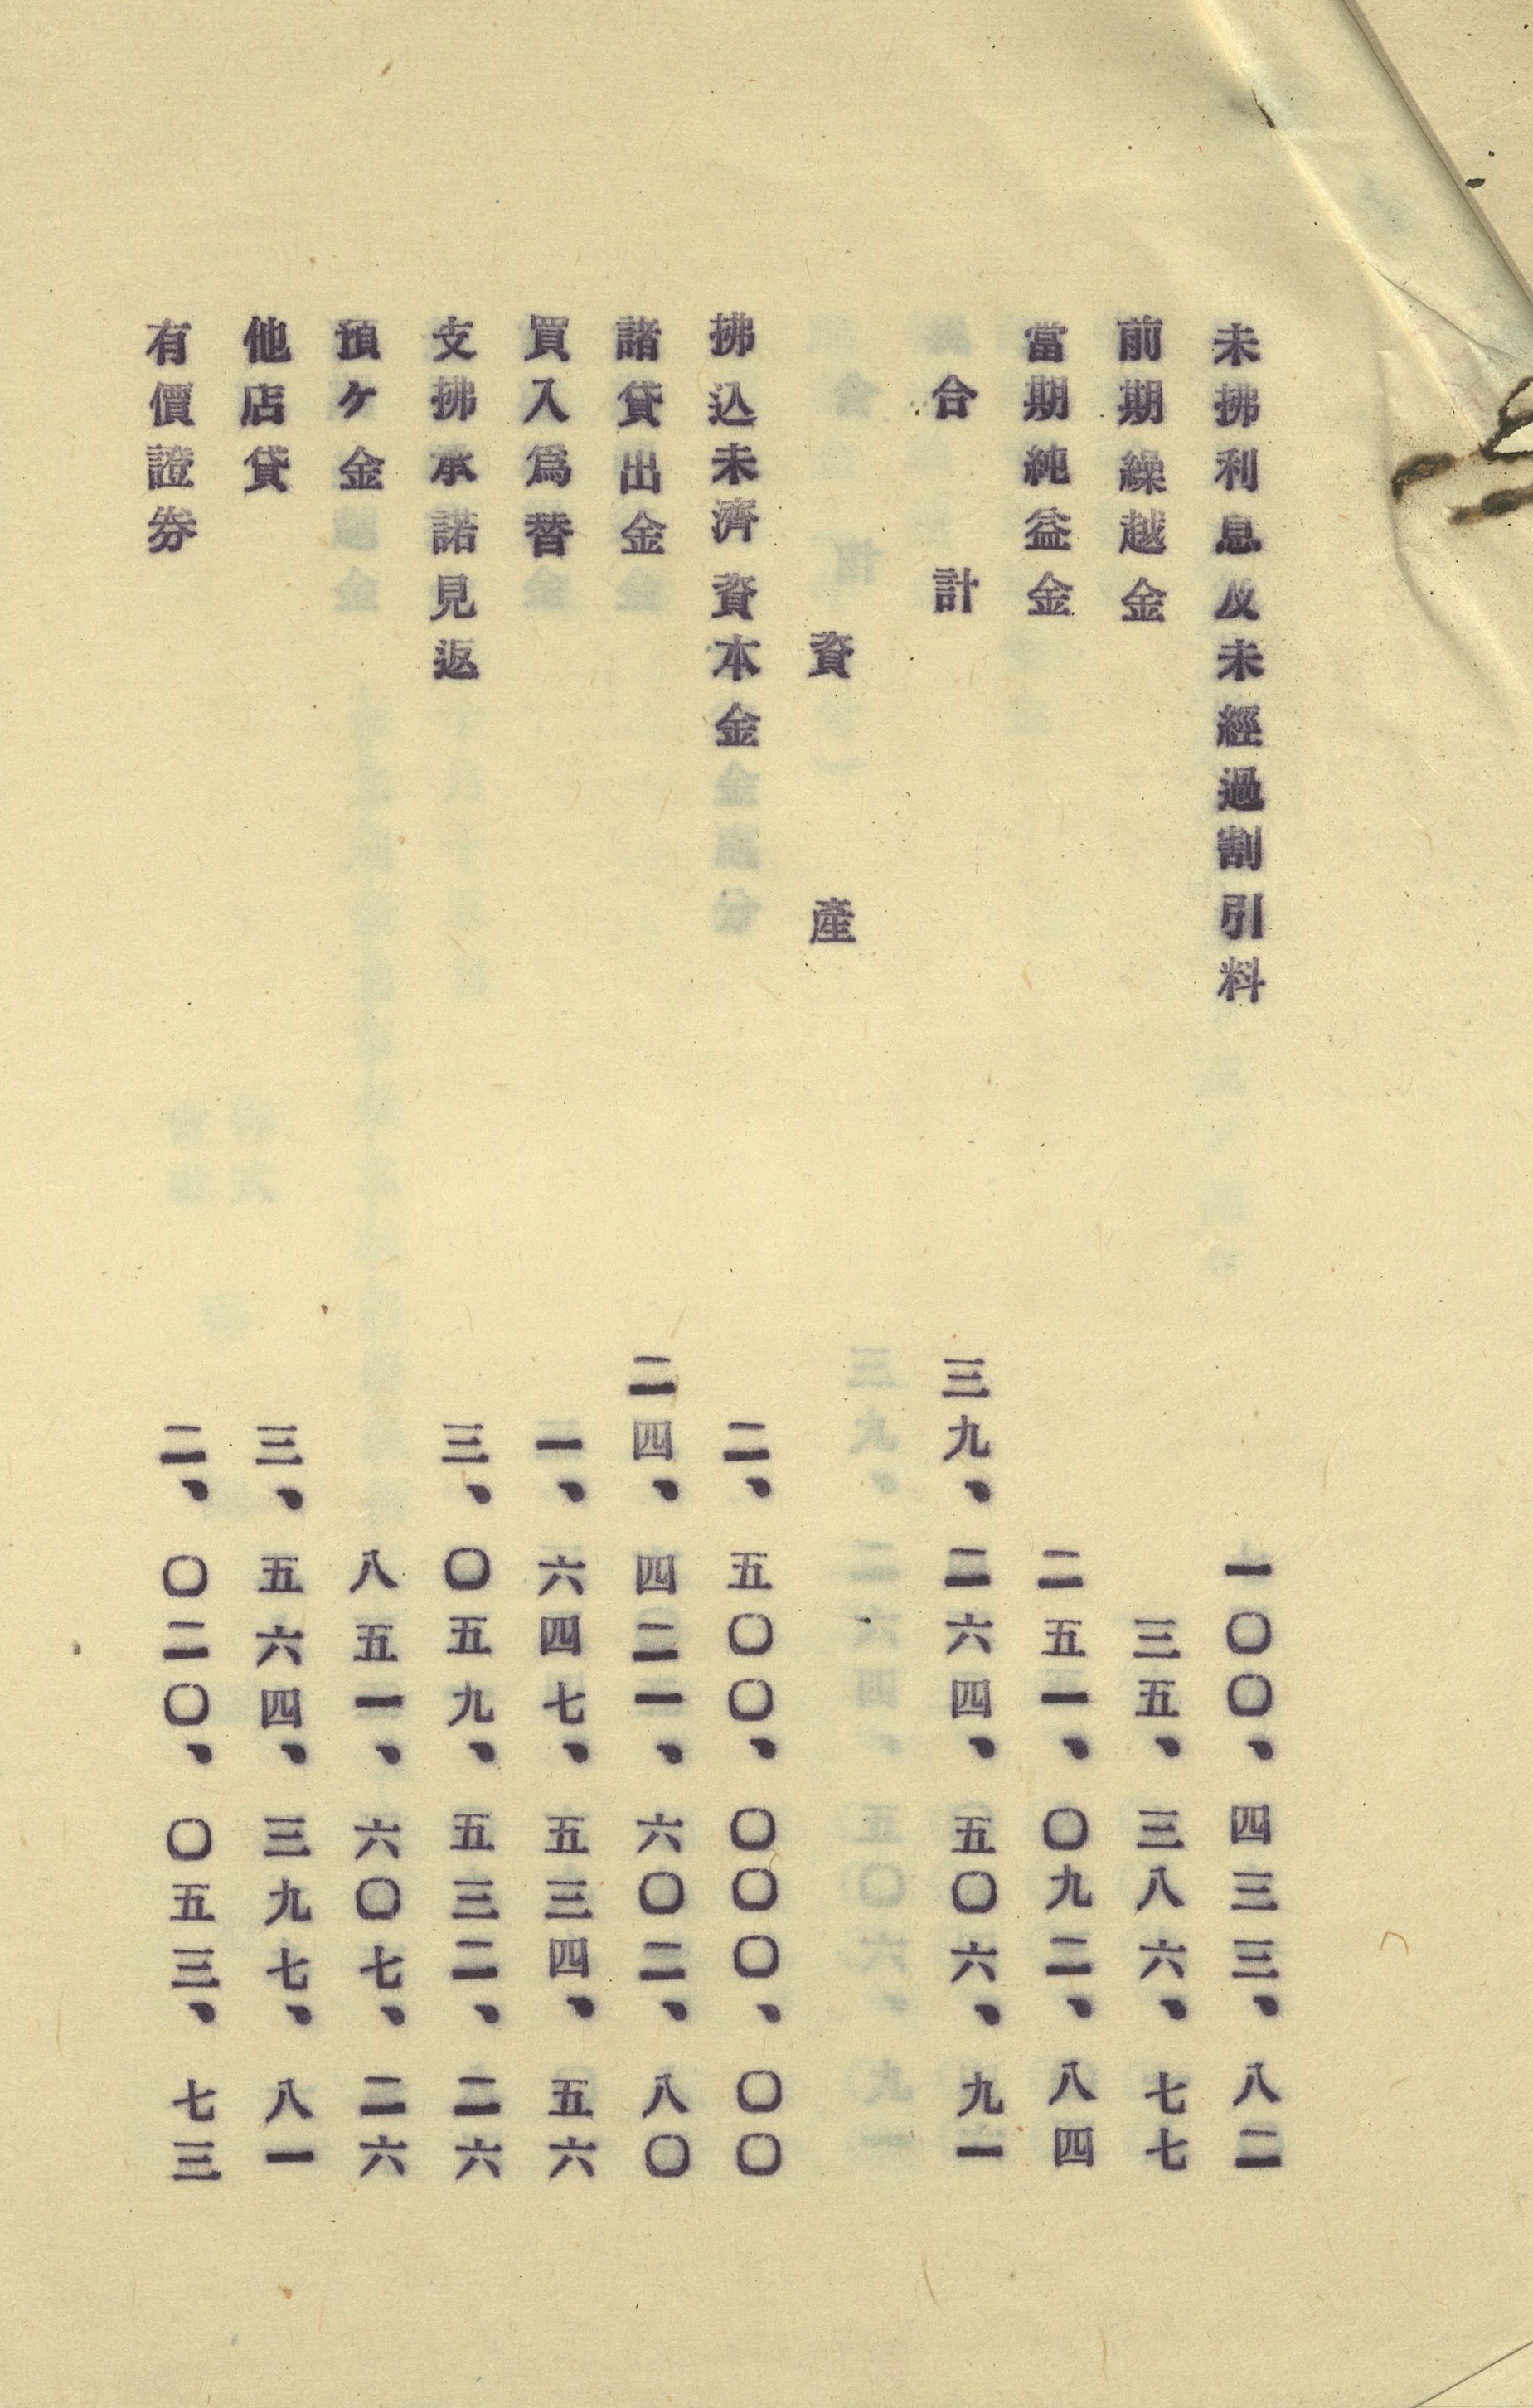 未拂利息及未經過割引料 一〇〇、四三三、八二
前期繰越金 三五、三八六、七七
當期純益金 二五一、〇九二、八四
合計 三九、二六四、五〇六、九一
資產
拂込未濟資本金 二、五〇〇、〇〇〇、〇〇
諸貸出金 二四、四二一、六〇二、八〇
買入爲替 一、六四七、五三四、五六
支拂承諾見返 三、〇五九、五三二、二六
預ケ金 八五一、六〇七、二六
他店貸 三、五六四、三九七、八一
有價證券 二、〇二〇、〇五三、七三